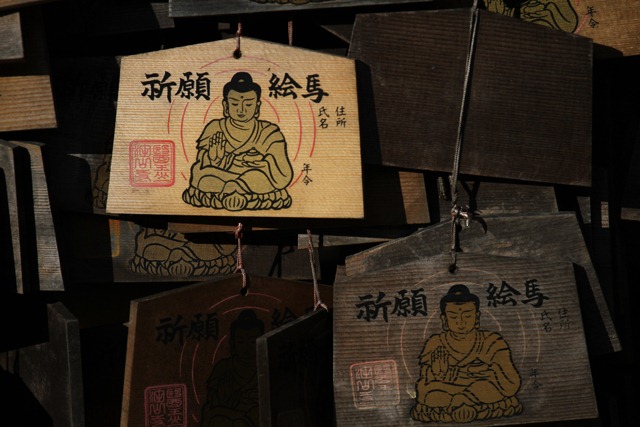 祈願 絵馬
住所
氏名
年令
年令
祈願
祈願 絵馬
住所
氏名
年令